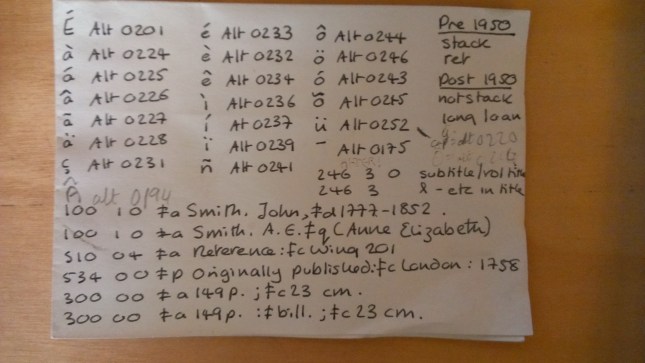 É Alt 0201 é Alt 0233 ô Alt 0244 Pre 1950
à Alt 0224 è Alt 0232 ö Alt 0246 stack
á Alt 0225 ê Alt 0234 ó Alt 0243 ref
â Alt 0226 ì Alt 0236 õ Alt 0245 Post 1950
ã Alt 0227 í Alt 0237 ü Alt 0252 not stack
ä Alt 0228 ï Alt 0239 - Alt 0175 long loan
ç Alt 0231 ñ Alt 0241
246 3 0 subtitle/vol title
 alt 0194 246 3 & - etc in title
100 10 ‡a Smith. John, ‡d 1777-1852.
100 10 ‡a Smith. A.E. ‡q (Anne Elizabeth)
510 04 ‡a Reference: ‡c Wing 201
534 00 ‡p Originally published: ‡c London: 1758
300 00 ‡a 149p. ; ‡c 23 cm.
300 00 ‡a 149p. : ‡b ill. ; ‡c 23 cm.